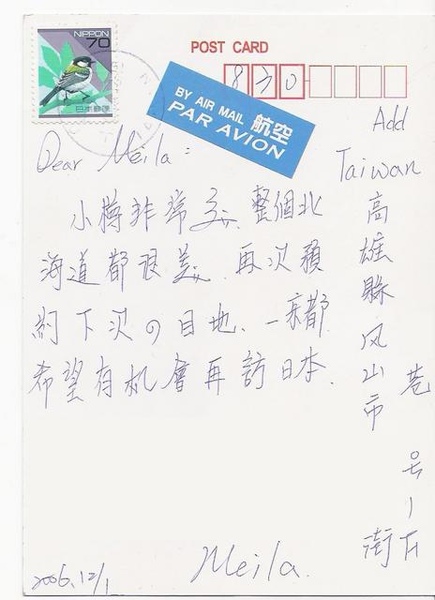 NIPPON
70
日本郵便
POST CARD
830
BY AIR MAIL 航空
PAR AVION
Add
Taiwan
高雄縣风山市
街
巷
Dear Meila :
小樽非常美. 整個北
海道都很美. 再次預
約下次の目地、一京都
希望有机會再訪日本.
Meila.
2006.12/1